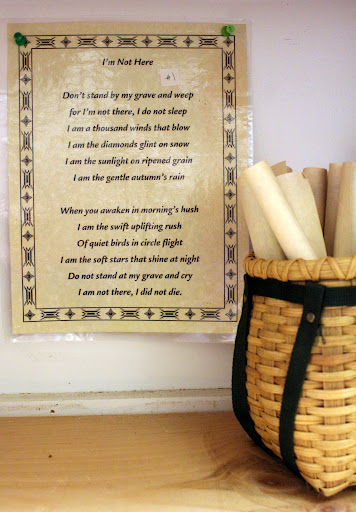 I'm Not Here
#1
Don't stand by my grave and weep
for I'm not there, I do not sleep
I am a thousand winds that blow
I am the diamonds glint on snow
I am the sunlight on ripened grain
I am the gentle autumn's rain
When you awaken in morning's hush
I am the swift uplifting rush
Of quiet birds in circle flight
I am the soft stars that shine at night
Do not stand at my grave and cry
I am not there, I did not die.